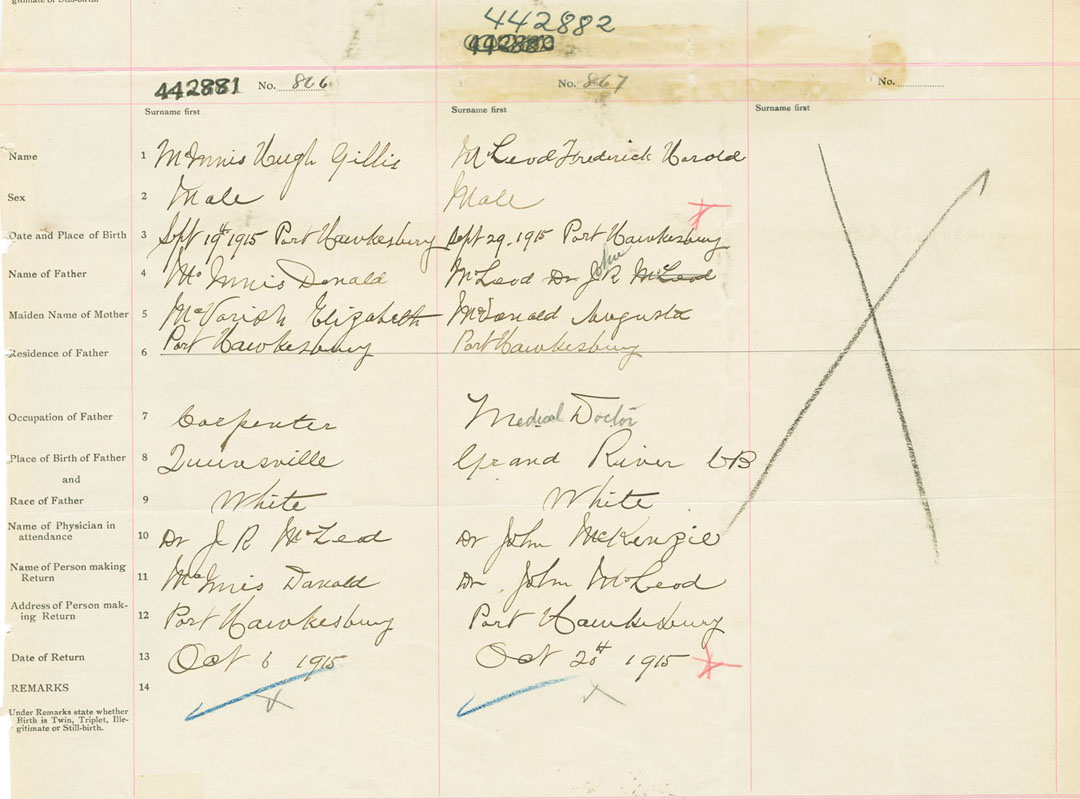 gitimate or Still-birth.
442882
442881 No. 866 No. 867 No.
Surname first Surname first Surname first
Name 1 McInnis Hugh Gillis McLeod Frederick Harold
Sex 2 Male Male
Date and Place of Birth 3 Sept 19th 1915 Port Hawkesbury Sept 29. 1915 Port Hawkesbury
John
Name of Father 4 McInnis Donald McLeod Dr J R McLeod
Maiden Name of Mother 5 McVarish Elizabeth McDonald Augusta
Residence of Father 6 Port Hawkesbury Port Hawkesbury
Occupation of Father 7 Carpenter Medical Doctor
Place of Birth of Father 8 Queensville Grand River CB
and
Race of Father 9 White White
Name of Physician in
attendance 10 Dr J R McLeod Dr John McKenzie
Name of Person making
Return 11 McInnis Donald Dr John McLeod
Address of Person mak-
ing Return 12 Port Hawkesbury Port Hawkesbury
Date of Return 13 Oct 6 1915 Oct 20th 1915
REMARKS 14
Under Remarks state whether
Birth is Twin, Triplet, Ille-
gitimate or Still-birth.